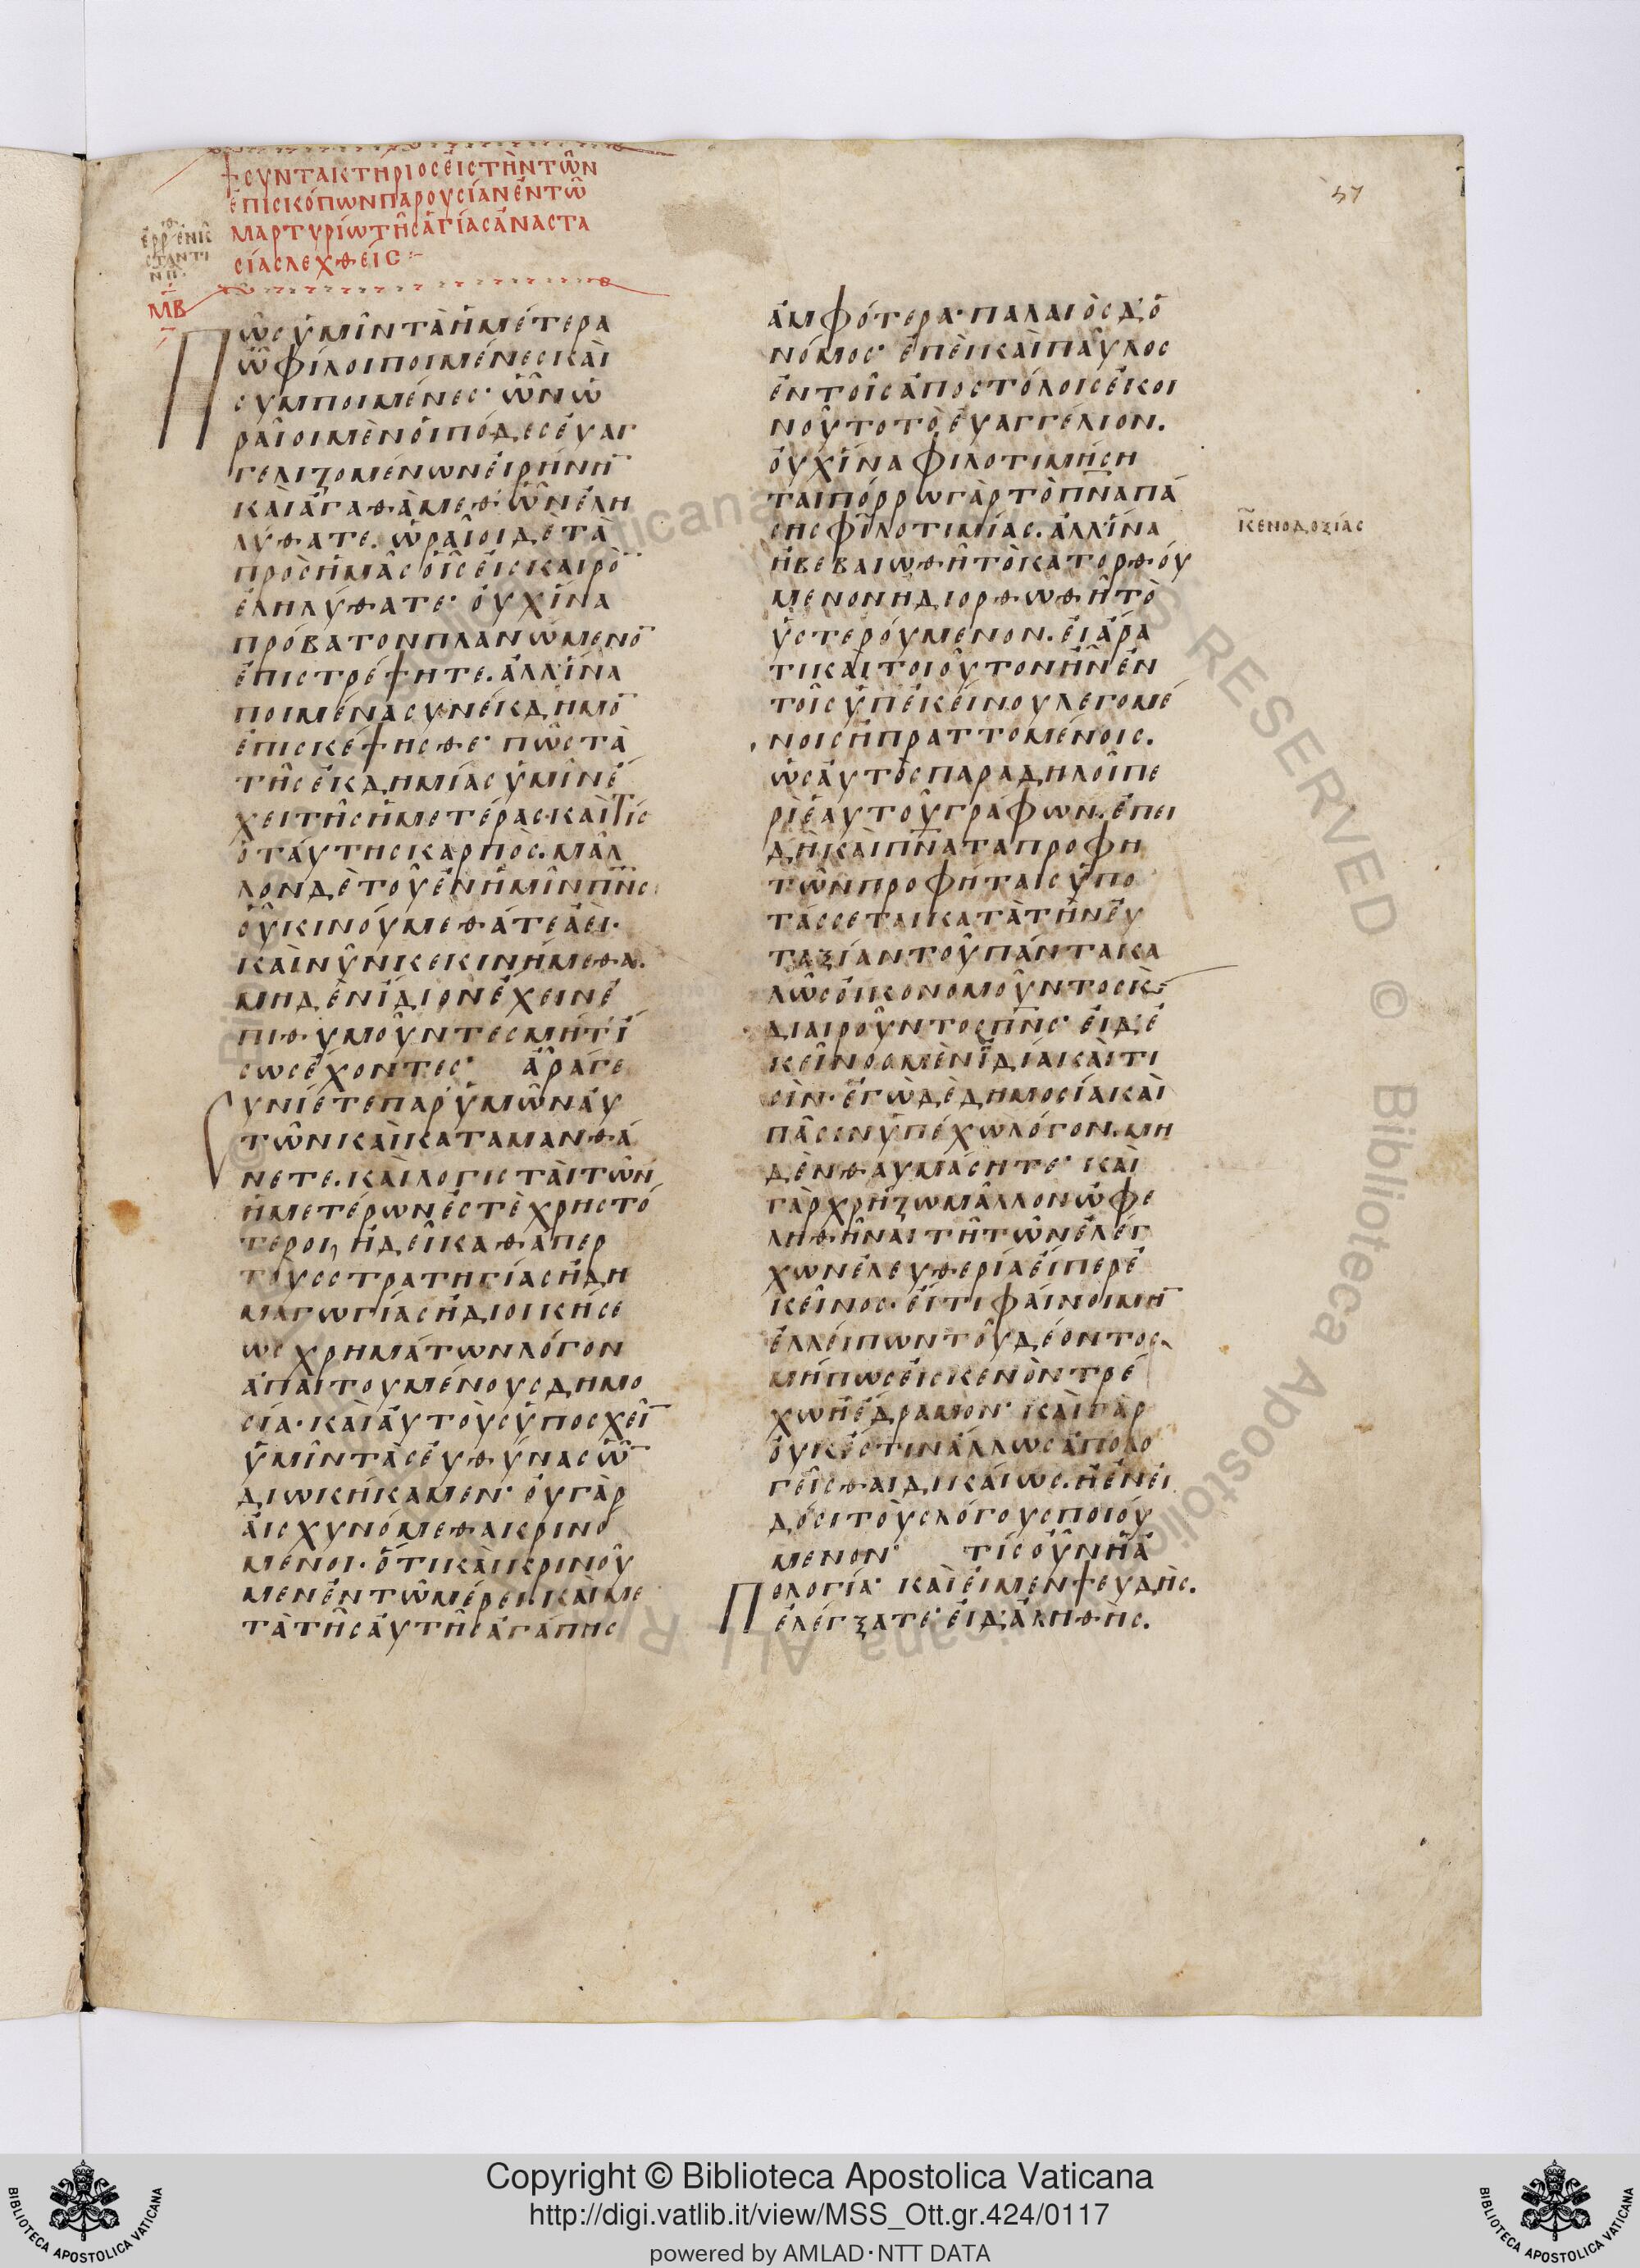 57
† ΣΥΝΤΑΚΤΗΡΙΟΣ ΕἸΣ ΤῊΝ ΤΩ͂Ν
ἘΠΙΣΚΌΠΩΝ ΠΑΡΟΥΣΊΑΝ ἘΝ ΤΩ͂
ΜΑΡΤΥΡΊΩ ΤΗ͂Σ ἉΓΊΑΣ ἈΝΑΣΤΑ
ΣΊΑΣ ΛΕΧΘΕΊΣ :-
ΜΒ
Πῶς ὑμῖν τὰ ἡμέτερα
ὦ φίλοι ποιμένες καὶ
συμποιμένες· ὧν ὡ
ραῖοι μὲν ὁι πόδες ἐυαγ
γελιζομένων ἐιρήνη̄
καὶ ἀγαθὰ μεθ' ὧν ἐλη
λύθατε. ὡραῖοι δὲ τὰ
πρὸς ἡμᾶς οἷς ἐις καιρὸ̄
ἐληλύθατε· ὀυχ ἵνα
πρόβατον πλανώμενο̄
ἐπιστρέψητε. ἀλλ' ἵνα
ποιμένα συνέκδημο̄
ἐπισκέψησθε· πῶς τὰ
τῆς ἐκδημίας ὑμῖν ἔ
χει τῆς ἡμετέρας· καὶ τίς
ὁ ταύτης καρπός. μᾶλ
λον δὲ τοῦ ἐν ἡμῖν πν̄ς
ὧ κινούμεθά τε ἀεὶ·
καὶ νῦν κεκινήμεθα.
μηδὲν ἴδιον ἔχειν ἐ
πιθυμοῦντες μήτ' ἴ
σως ἔχοντες· ἆρά γε
συνίετε παρ' ὑμῶν ἀυ
τῶν καὶ καταμανθά
νετε. καὶ λογισταὶ τῶν
ἡμετέρων ἐστὲ χρηστό
τεροι, ἢ δεῖ καθάπερ
τοὺς στρατηγίας ἢ δη
μαγωγίας ἢ διοικήσε
ως χρημάτων λόγον
ἀπαιτουμένους δημο
σία· καὶ ἀυτοὺς ὑποσχεῖ̄
ὑμῖν τὰς ἐυθύνας ὧ̄
διωκήκαμεν· ὀυ γὰρ
ἀισχυνόμεθα κρινό
μενοι· ὅτι καὶ κρινοῦ
μεν ἐν τῶ μέρει. καὶ με
τὰ τῆς ἀυτῆς ἀγάπης
ἀμφότερα· παλαιὸς δ' ὁ
νόμος· ἐπεὶ καὶ παῦλος
ἐν τοῖς ἀποστόλοις ἐκοι
νοῦτο τὸ ἐυαγγέλιον.
ὀυχ ἵνα φιλοτιμήση
ται πόρρω γὰρ τὸ πν̄α πά
σης φιλοτιμίας. ἀλλ' ἵνα
κενοδοξίας
ἢ βεβαιωθῆ τὸ κατορθού
μενον ἢ διορθωθῆ τὸ
ὑστερούμενον. ἐι ἄρα
τι καὶ τοιοῦτον ἦν ἐν
τοῖς ὑπ' ἐκείνου λεγομέ
νοις ἢ πραττομένοις.
ὡς ἀυτὸς παραδηλοῖ πε
ρὶ ἑαυτοῦ γράφων. ἐπει
δὴ καὶ πν̄ατα προφη
τῶν προφήταις ὑπο
τάσσεται κατὰ τὴν ἐυ
ταξίαν τοῦ πάντα κα
λῶς ὀικονομοῦντος κ̀
διαιροῦντος πν̄ς· ἐι δ' ἐ
κεῖνος μὲν ἰδία καὶ τι
σὶν· ἐγὼ δὲ δημοσία καὶ
πᾶσιν ὑπέχω λόγον. μη
δὲν θαυμάσητε· καὶ
γὰρ χρήζω μᾶλλον ὠφε
ληθῆναι τῆ τῶν ἐλέγ
χων ἐλευθερία ἐίπερ ἐ
κεῖνος· ἐί τι φαινοίμη̄
ἐλλείπων τοῦ δέοντος.
μήπως ἐις κενὸν τρέ
χω ἢ ἔδραμον· καὶ γὰρ
ὀυκ ἔστιν ἄλλως ἀπολο
γεῖσθαι δικαίως. ἢ ἐν ἐι
δόσι τοὺς λόγους ποιού
μενον· τίς οὖν ἡ ἀ
Πολογία· καὶ ἐι μὲν ψευδὴς.
ἐλέγξατε· ἐι δ' ἀληθὴς.
Copyright © Biblioteca Apostolica Vaticana
http://digi.vatlib.it/view/MSS_Ott.gr.424/0117
powered by AMLAD·NTT DATA
BIBLIOTECA APOSTOLICA VATICANA
BIBLIOTECA APOSTOLICA VATICANA